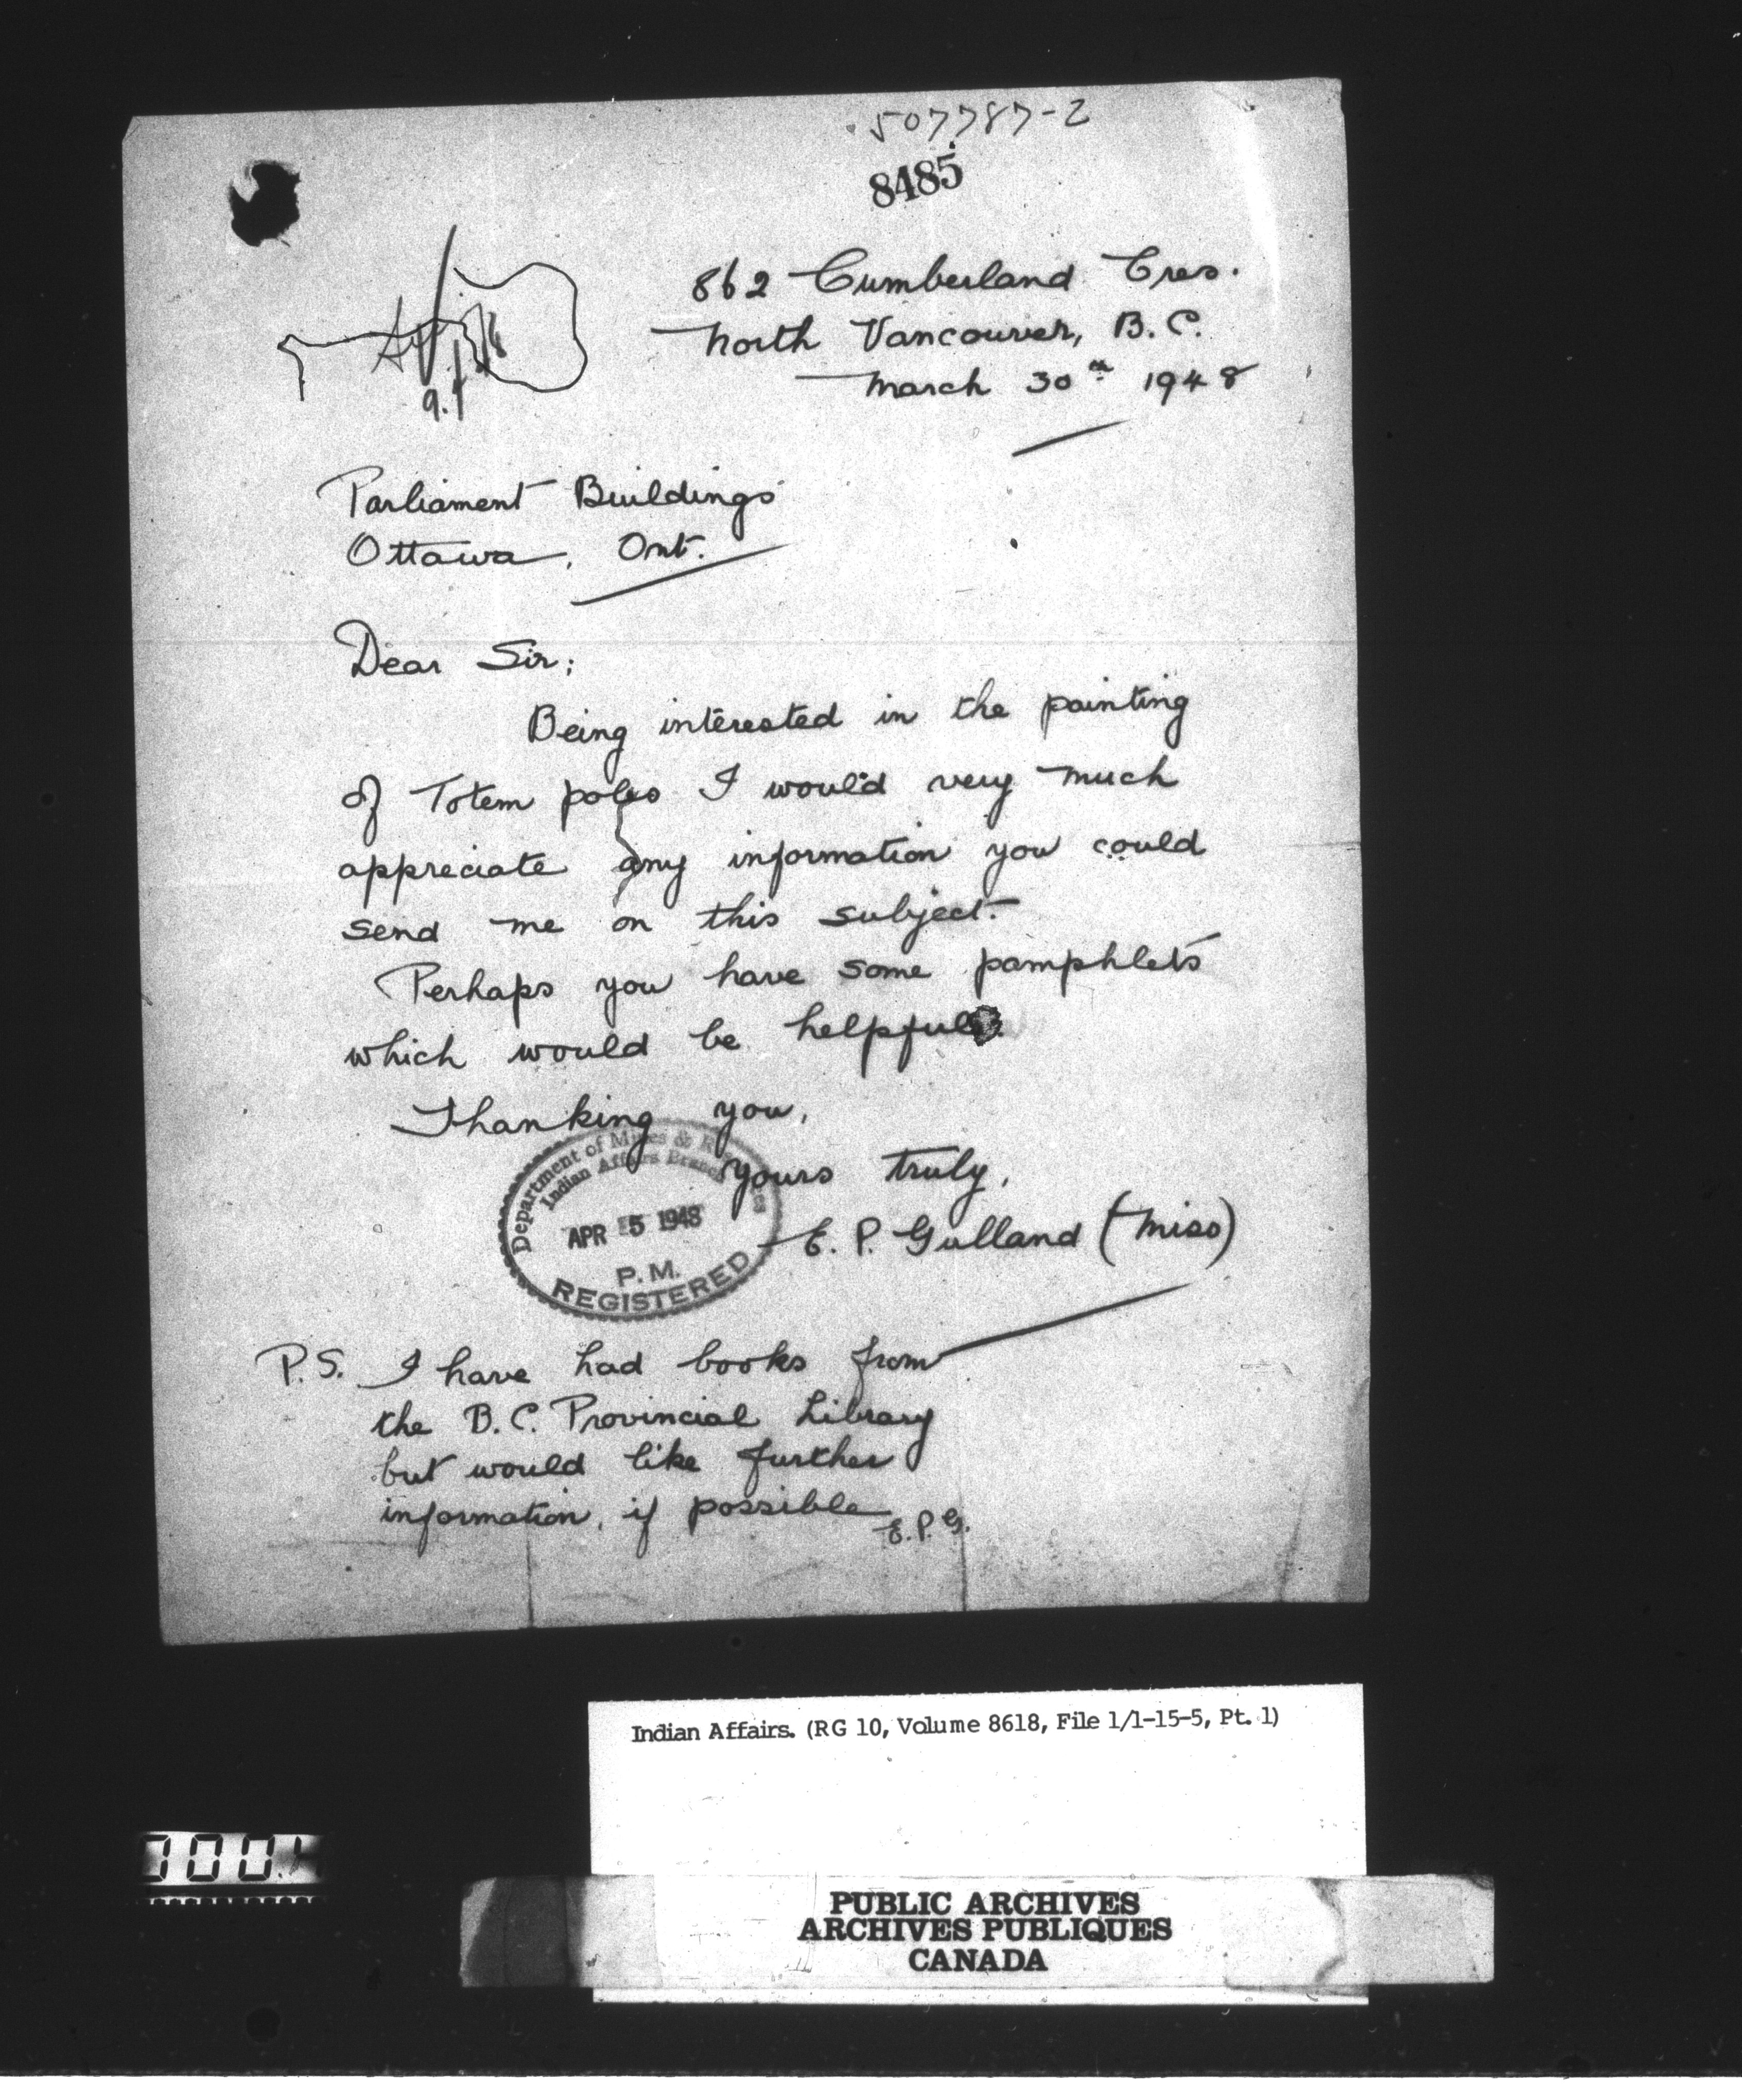 507787-2
8485
862 Cumberland Cres.
North Vancouver, B.C.
March 30th 1948
9.4
Parliament Buildings
Ottawa, Ont.
Dear Sir;
Being interested in the painting
of Totem poles I would very much
appreciate any information you could
send me on this subject.
Perhaps you have some pamphlets
which would be helpful.
Thanking you,
Yours truly,
E. P. Gulland (Miss)
Department of Mines & Resources
Indian Affairs Branch
APR 5 1948
P.M.
REGISTERED
P.S. I have had books from
the B.C. Provincial Library
but would like further
information, if possible
E.P.G.
Indian Affairs. (RG 10, Volume 8618, File 1/1-15-5, Pt. 1)
PUBLIC ARCHIVES
ARCHIVES PUBLIQUES
CANADA